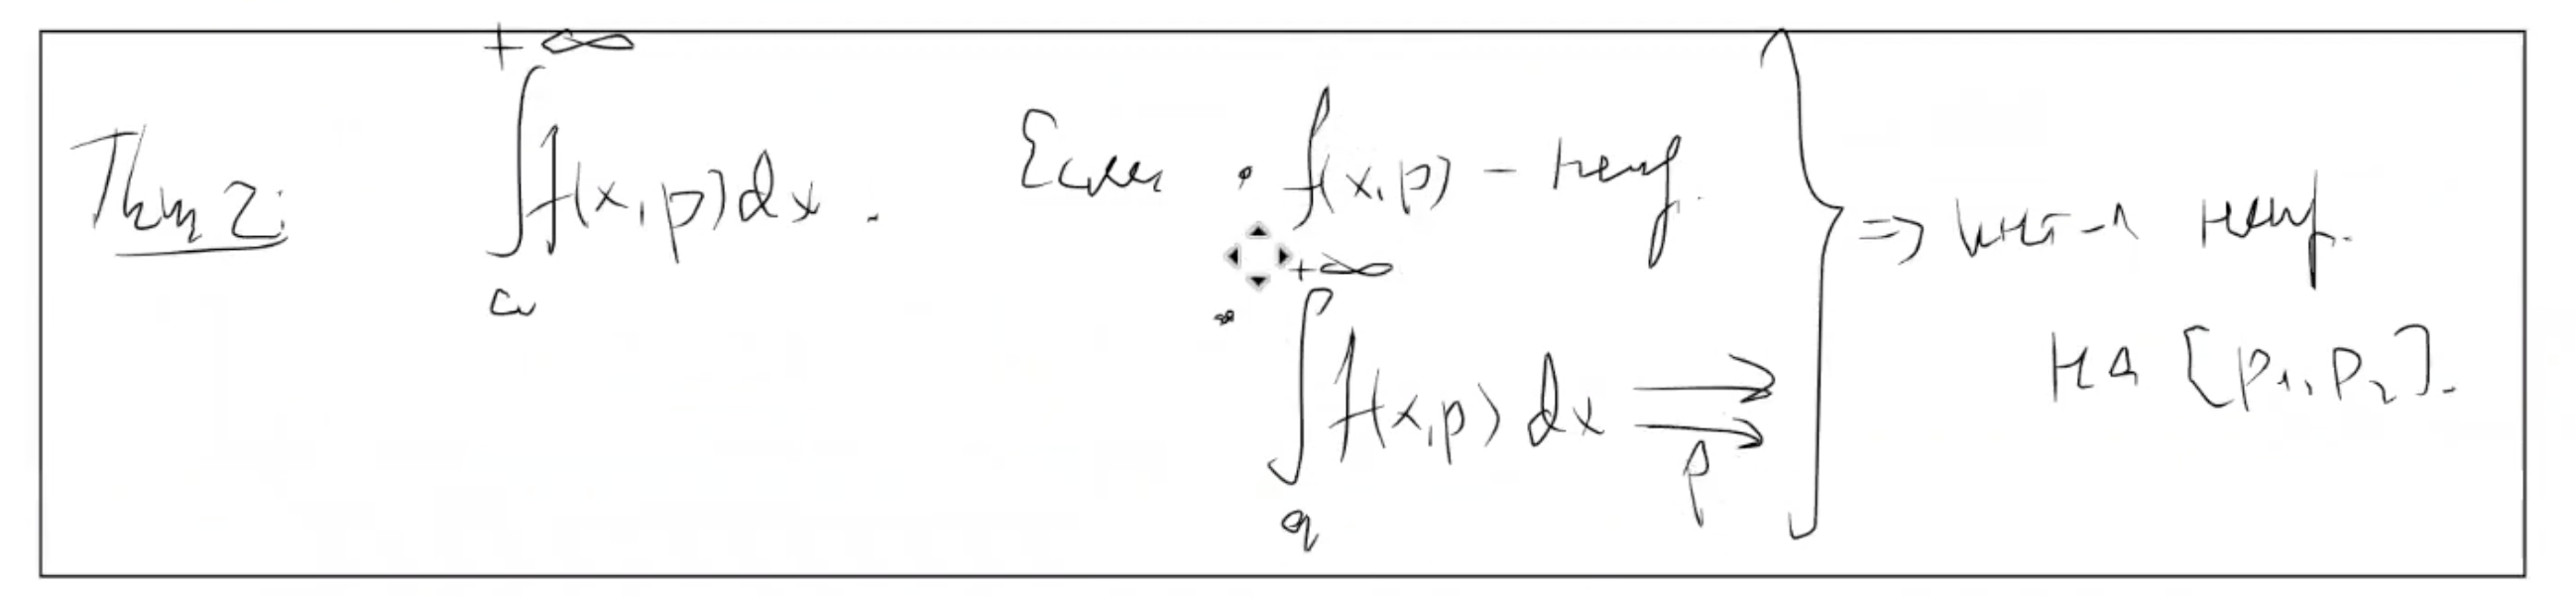 Thm 2: ∫_a^{+∞} f(x,p)dx. Если • f(x,p) – непр.
• ∫_a^{+∞} f(x,p) dx ⇉_p
⇒ инт-л непр.
на [p₁, p₂].